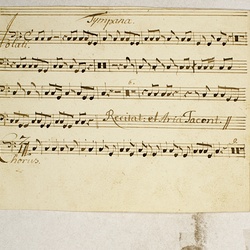 Tympana.
Notati.
6.
Recitat: et Aria Tacent.
Chorus.